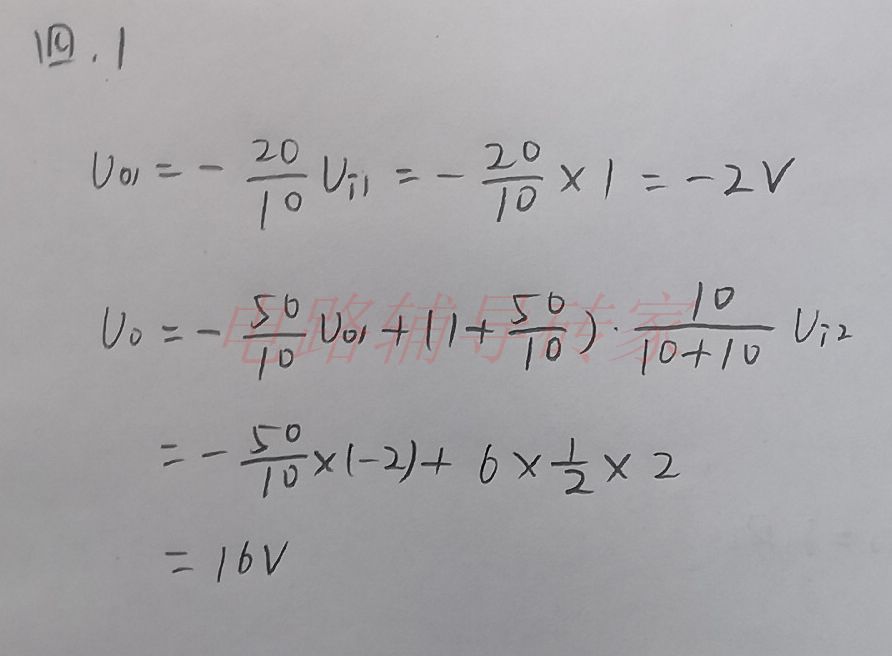 四.1
U₀₁ = - 20/10 Uᵢ₁ = - 20/10 × 1 = -2V
U₀ = - 50/10 U₀₁ + (1 + 50/10) · 10/(10+10) Uᵢ₂
电路辅导砖家
= - 50/10 × (-2) + 6 × 1/2 × 2
= 16V